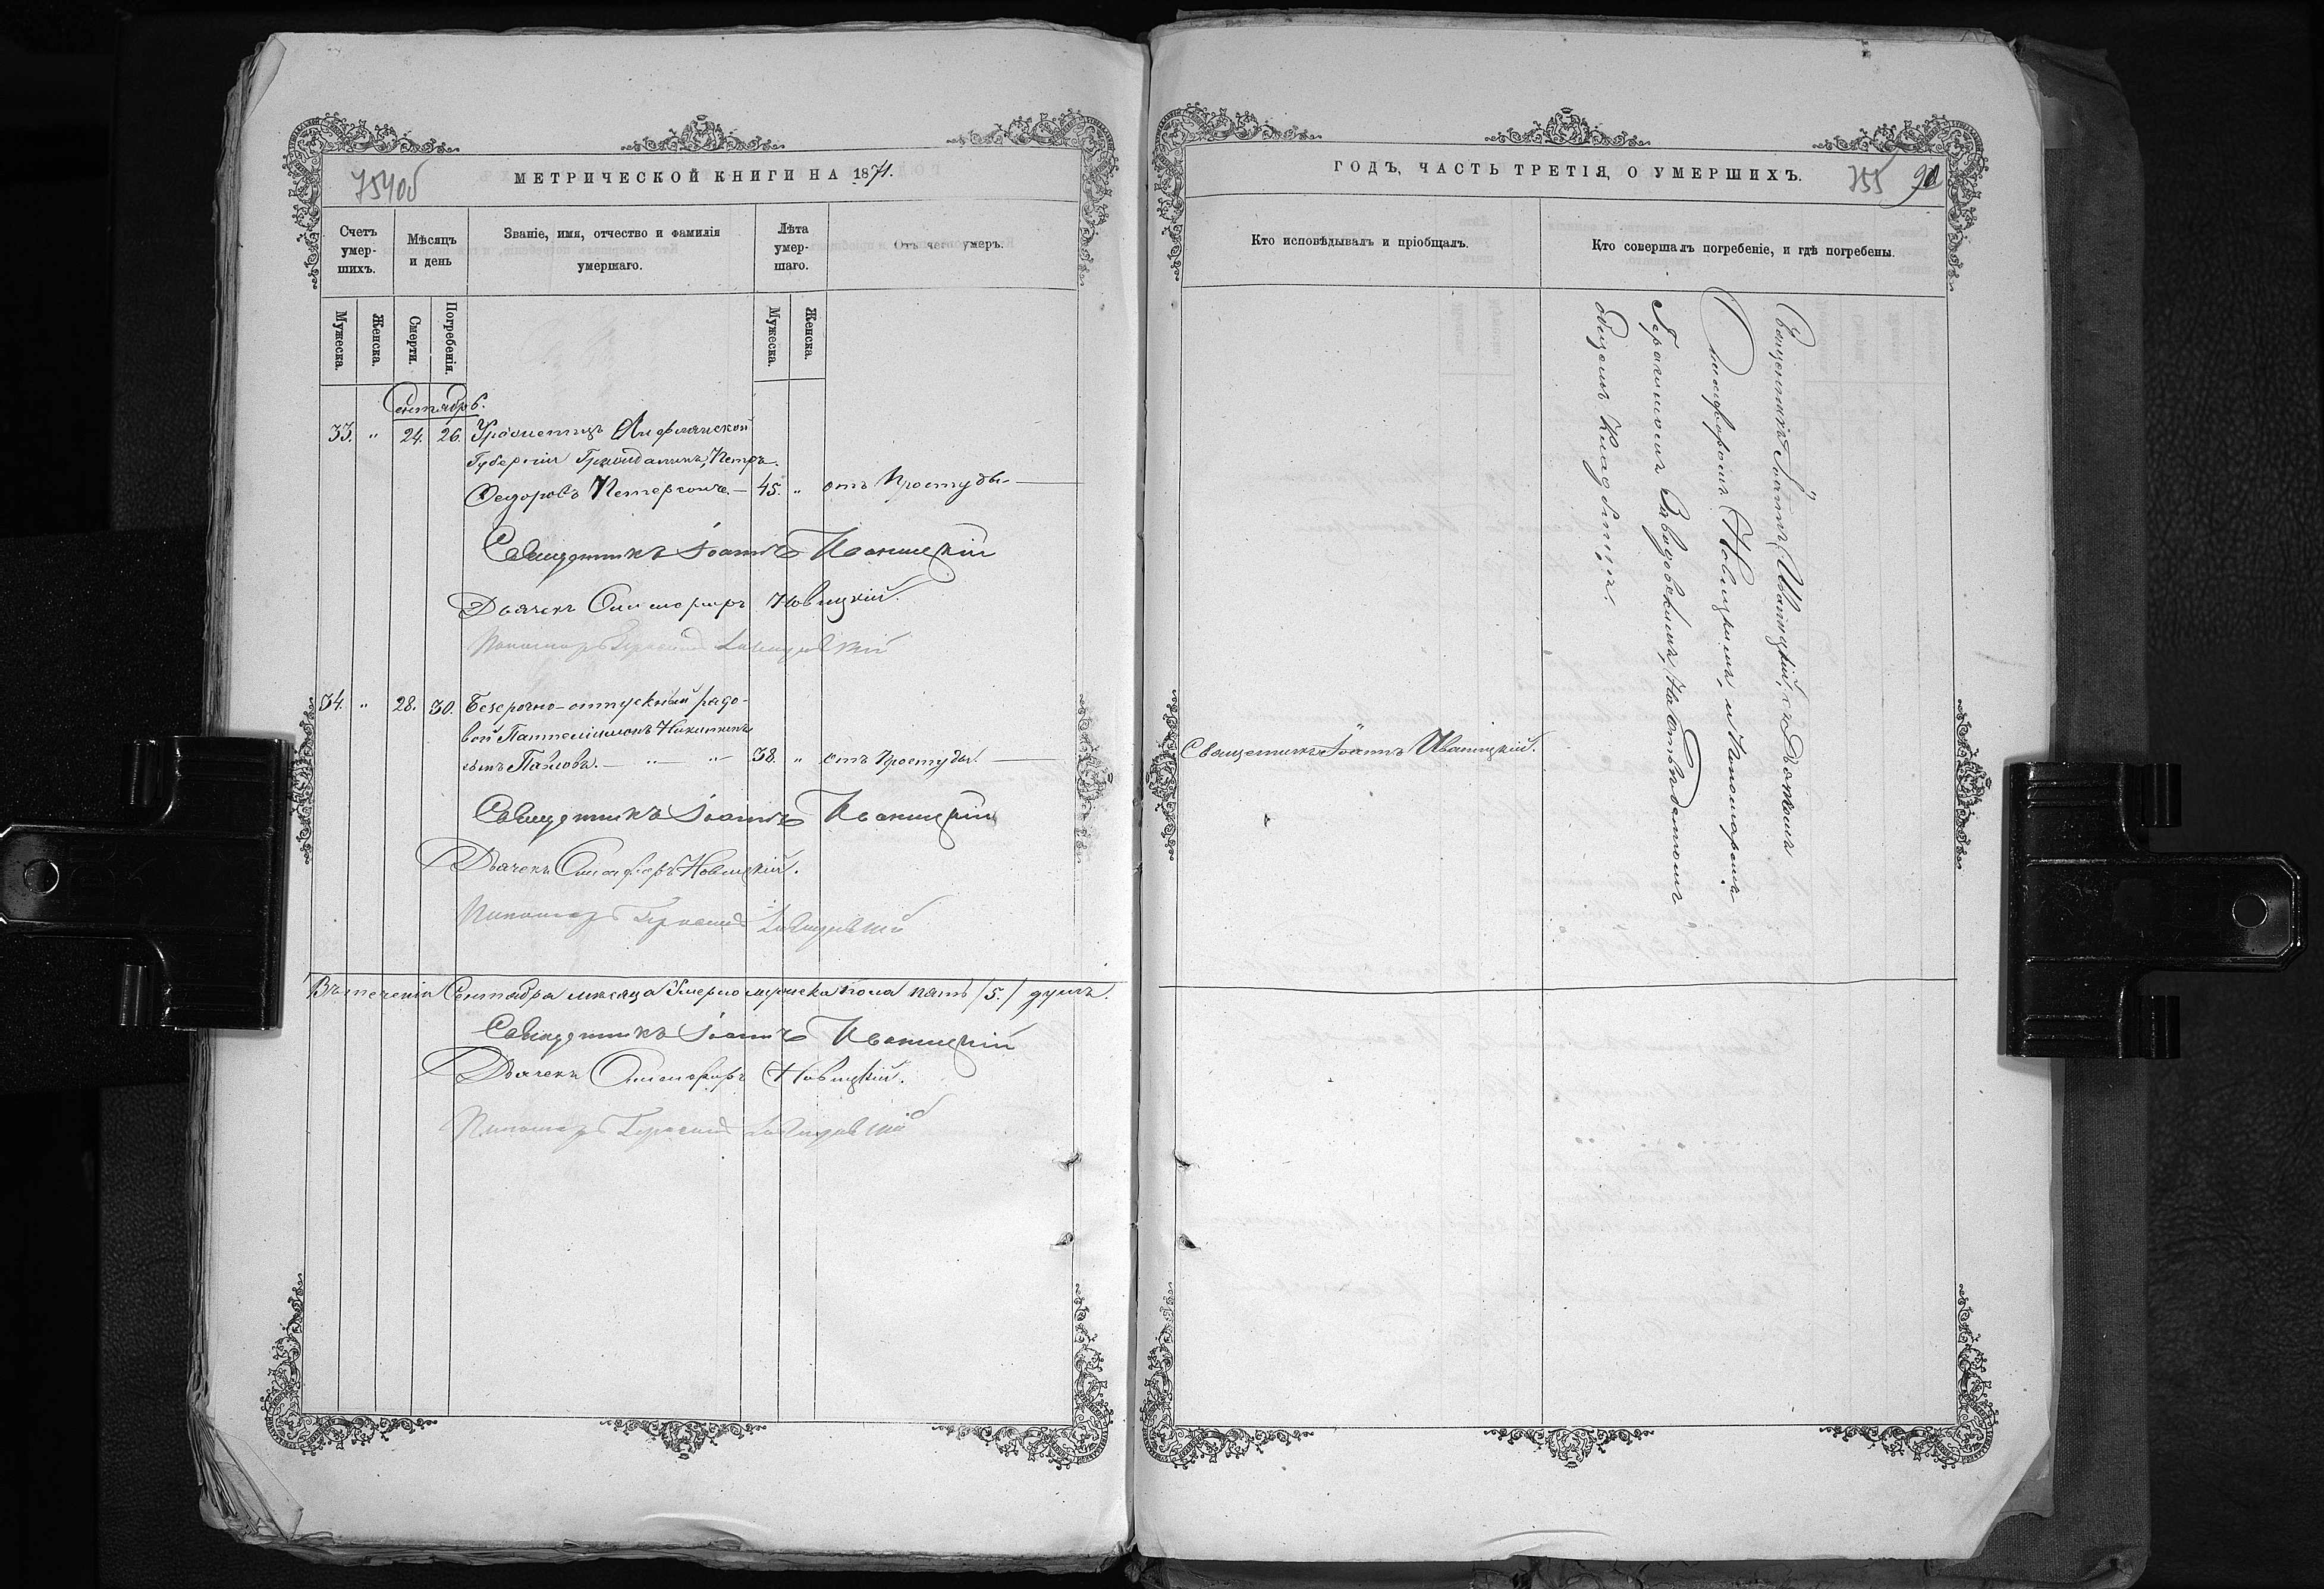 754об
МЕТРИЧЕСКОЙ КНИГИ НА 1871.
Счетъ умер-шихъ.
Мѣсяцъ и день
Званіе, имя, отчество и фамилія умершаго.
Лѣта умер-шаго.
Отъ чего умеръ.
Мужеска.
Женска.
Смерти.
Погребенія.
Мужеска.
Женска.
Сентябрь.
33. " 24. 26. Уроженецъ Лифлянской
Губерніи Гражданинъ, Петръ
Федоровъ Петерсонъ. — 45. " отъ Простуды. —
Священникъ Іоаннъ Иваницкій
Дьячекъ Онисифоръ Новицкій.
Пономарь Герасимъ
34. " 28. 30. Безсрочно-отпускный рядо-
вой Пантелиимонъ Никитинъ
сынъ Павловъ. — " — " 38. " отъ Простуды. —
Священникъ Іоаннъ Иваницкій
Дьячекъ Онисифоръ Новицкій.
Пономарь Герасимъ
Въ теченіи Сентября мѣсяца Умерло мужеска пола пять /5./ душъ.
Священникъ Іоаннъ Иваницкій
Дьячекъ Онисифоръ Новицкій.
Пономарь Герасимъ
ГОДЪ, ЧАСТЬ ТРЕТІЯ, О УМЕРШИХЪ.
755
Кто исповѣдывалъ и пріобщалъ.
Кто совершалъ погребеніе, и гдѣ погребены.
Священникъ Іоаннъ Иваницкій.
Священникъ Іоаннъ Иваницкій, съ Дьячкомъ
Онисифоромъ Новицкимъ, и Пономаремъ
Герасимомъ на отведенномъ
общемъ Кладбищѣ.